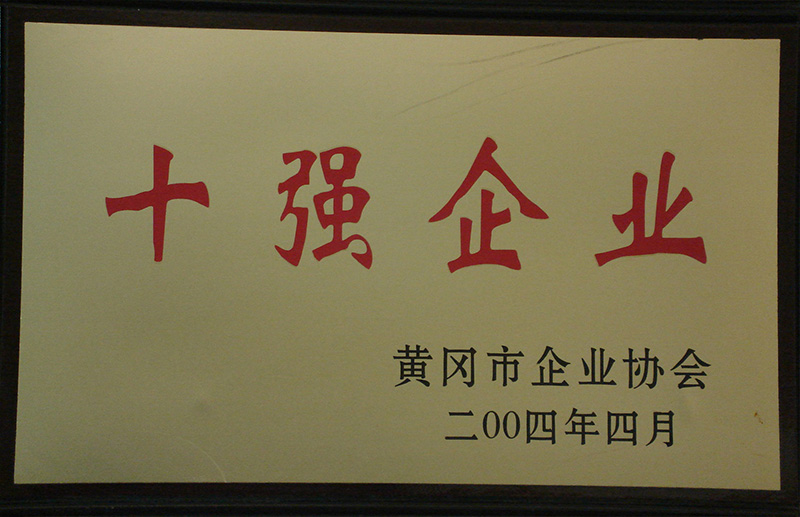 十强企业
黄冈市企业协会
二00四年四月